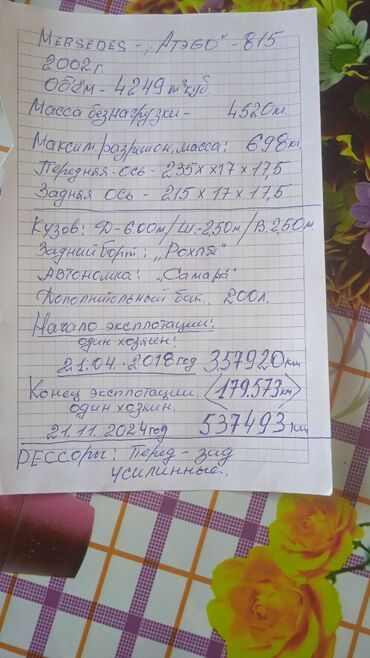 MERSEDES - „Атэgо" - 815
2002 г.
Объём - 4249 m³куб.
Масса без нагрузки - 4520 кг.
Максим. разришон. масса: 698 кг
Передняя - ось - 235 х х 17 х 17,5
Задняя ось - 215 х 17 х 17,5
Кузов: Д-6.00м/Ш-2,50м/В.2,50м
Задний борт: „Рохля"
Автономка: „Самара"
Дополнительный бак. 200л.
Начало эксплотации:
один хозяин!
21.04.-2018 год 357920 км
Конец эксплотации, 179.573 км
один хозяин.
21.11.2024 год 537493 км
РЕССОРЫ: Перед - зад
усилинные.